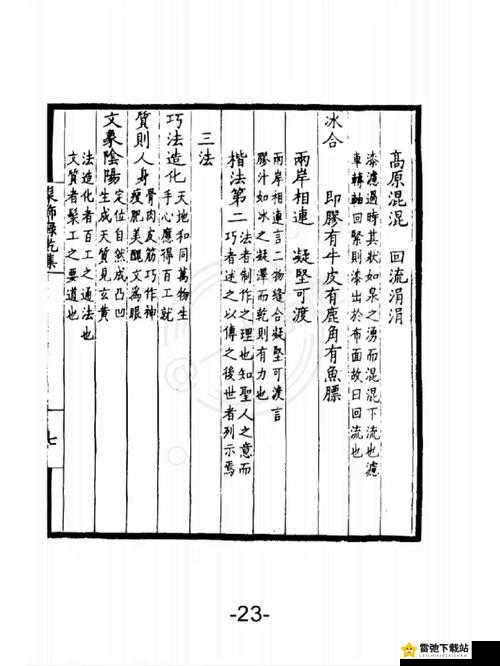 高原混混　回流涓涓
漆濾過時其狀如泉之湧而混混下流也濾
車轉軸回緊則漆出於布面故曰回流也
冰合　即膠有牛皮有鹿角有魚膘
兩岸相連　凝堅可渡
兩岸相連言二物縫合凝堅可渡言
膠汁如冰之凝澤而乾則有力也
楷法第二
法者制作之理也知聖人之意而
巧者述之以傳之後世者列示焉
三法
巧法造化
天地和同萬物生
手心應得百工就
質則人身
骨肉皮筋巧作神
瘦肥美醜文為眼
文象陰陽
定位自然成凸凹
生成天質見玄黄
法造化者百工之通法也
文質者髹工之要道也
七
-23-
雷弛下载站